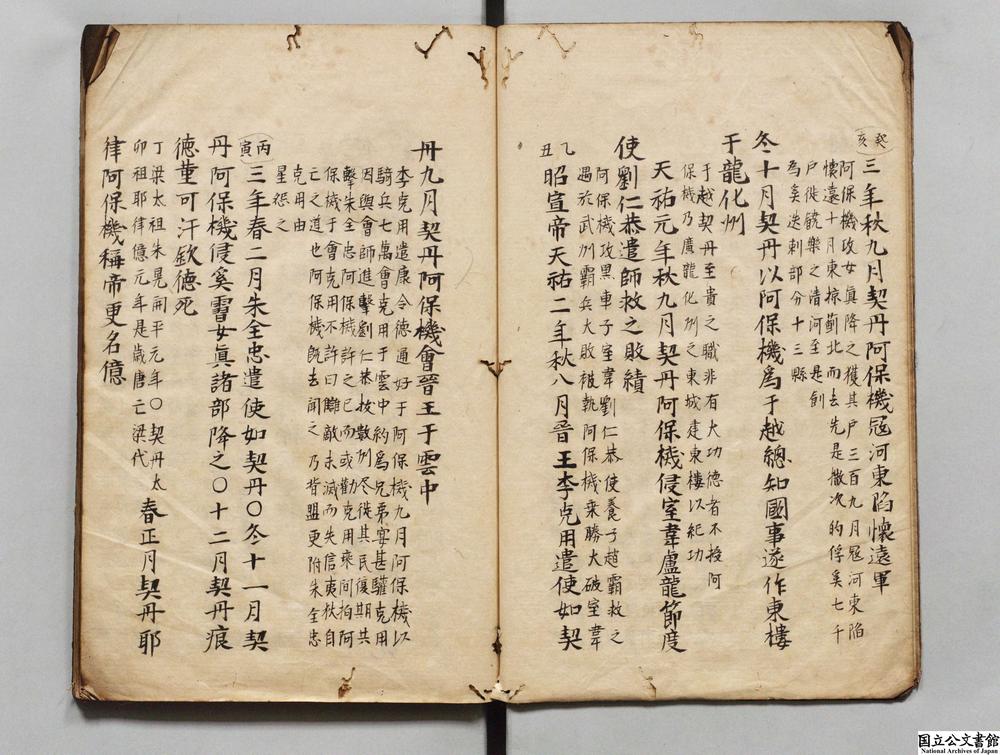 癸亥
三年秋九月契丹阿保機寇河東陷懷遠軍
阿保機攻女眞降之獲其戶三百九月寇河東陷
懷遠十月東掠薊北而去先是撒次的俘奚七千
戶徙饒樂之清河至是創
為奚迭剌部分十三縣
冬十月契丹以阿保機為于越總知國事遂作東樓
于龍化州
于越契丹至貴之職非有大功德者不授阿
保機乃廣龍化州之東城建東樓以紀功
天祐元年秋九月契丹阿保機侵室韋盧龍節度
使劉仁恭遣師救之敗績
阿保機攻黑車子室韋劉仁恭使養子趙霸救之
遇於武州霸兵大敗被執阿保機乘勝大破室韋
乙丑
昭宣帝天祐二年秋八月晉王李克用遣使如契
丹九月契丹阿保機會晉王于雲中
李克用遣康令德通好于阿保機九月阿保機以
騎兵七萬會克用于雲中約為兄弟宴甚驩克用
因與會師進擊劉仁恭拔數州冬徙其民復期共
擊朱全忠阿保機許之已而或勸克用乘間拍阿
保機于會克用不許曰讎敵未滅而失信夷狄自
亡之道也阿保機旣去聞之乃背盟更附朱全忠
克用由
星怨之
丙寅
三年春二月朱全忠遣使如契丹〇冬十一月契
丹阿保機侵奚霫女眞諸部降之〇十二月契丹痕
德菫可汗欽德死
丁梁太祖朱晃開平元年〇契丹太
卯祖耶律億元年是歲唐亡梁代
春正月契丹耶
律阿保機稱帝更名億
国立公文書館
National Archives of Japan